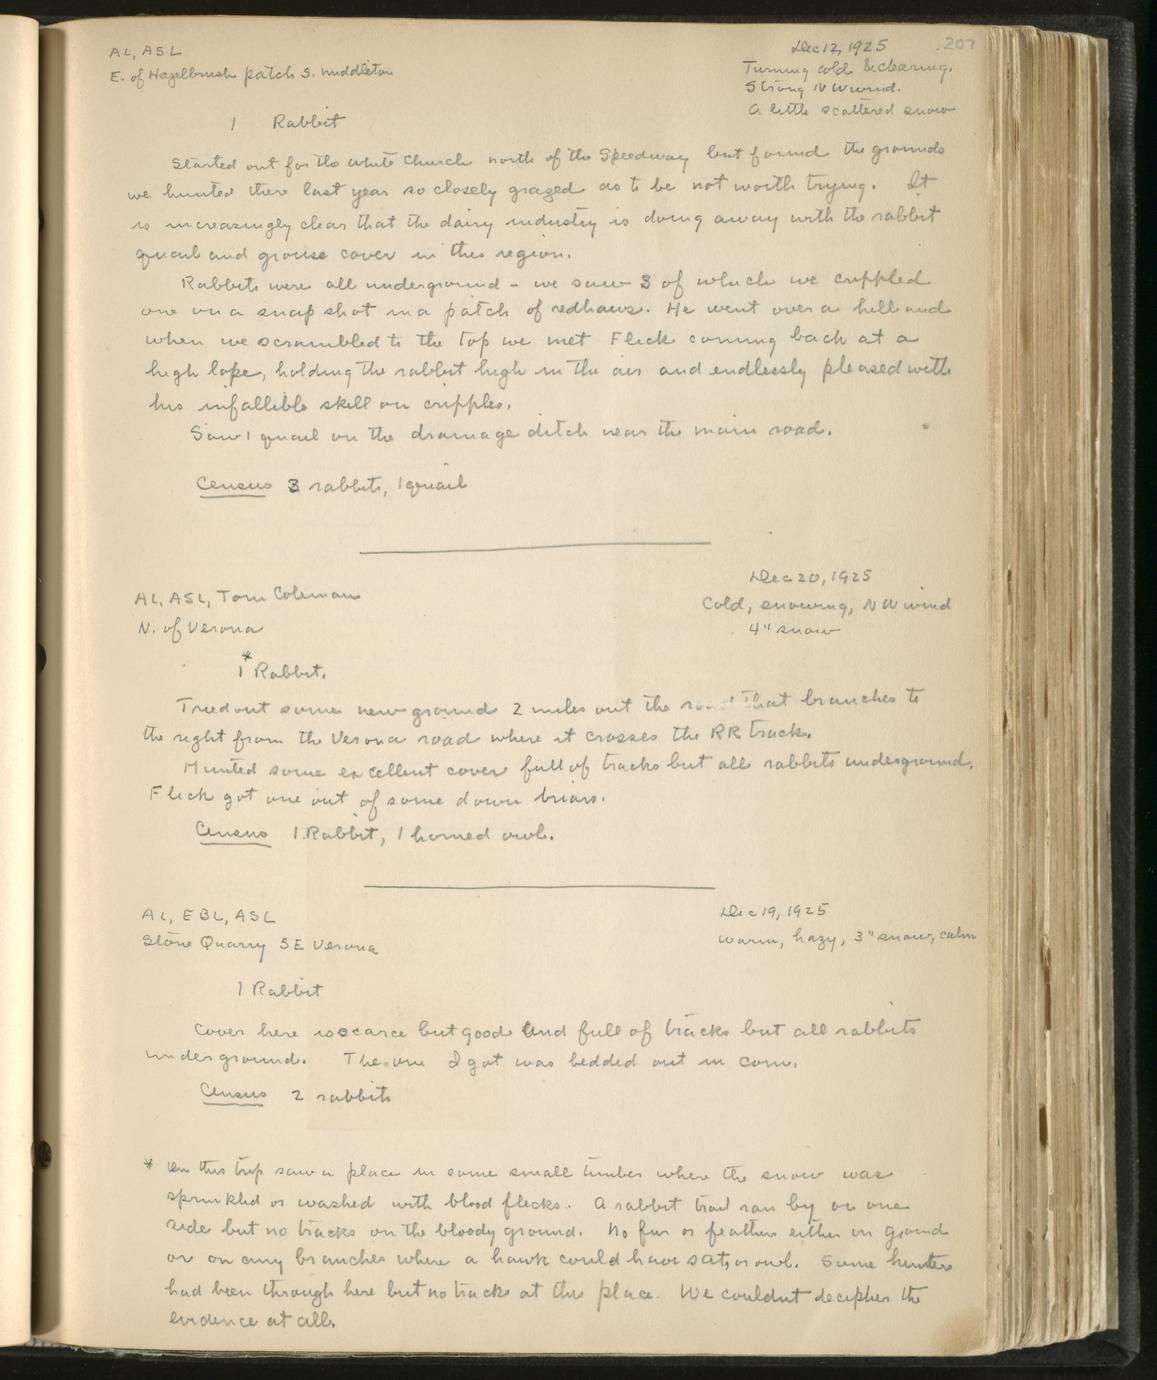 AL, ASL
E. of Hazelbrush patch S. Middleton
Dec 12, 1925
207
Turning cold & clearing.
Strong NW wind.
A little scattered snow
1 Rabbit
Started out for the white church north of the Speedway but found the grounds
we hunted there last year so closely grazed as to be not worth trying. It
is increasingly clear that the dairy industry is doing away with the rabbit
quail and grouse cover in this region.
Rabbits were all underground - we saw 3 of which we crippled
one on a snap shot in a patch of redhaws. He went over a hill and
when we scrambled to the top we met Flick coming back at a
high lope, holding the rabbit high in the air and endlessly pleased with
his infallible skill on cripples.
Saw 1 quail on the drainage ditch near the main road.
Census 3 rabbits, 1 quail
AL, ASL, Tom Coleman
N. of Verona
Dec 20, 1925
Cold, snowing, NW wind
4" snow
1* Rabbit.
Tried out some new ground 2 miles out the road that branches to
the right from the Verona road where it crosses the RR track.
Hunted some excellent cover full of tracks but all rabbits underground.
Flick got one out of some down briars.
Census 1 Rabbit, 1 horned owl.
AL, EBL, ASL
Stone Quarry SE Verona
Dec 19, 1925
warm, hazy, 3" snow, calm
1 Rabbit
Cover here is scarce but good and full of tracks but all rabbits
underground. The one I got was bedded out in corn.
Census 2 rabbits
* On this trip saw a place in some small timber where the snow was
sprinkled or washed with blood flecks. A rabbit trail ran by on one
side but no tracks on the bloody ground. No fur or feathers either on ground
or on any branches where a hawk could have sat, or owl. Some hunters
had been through here but no tracks at this place. We couldnt decipher the
evidence at all.